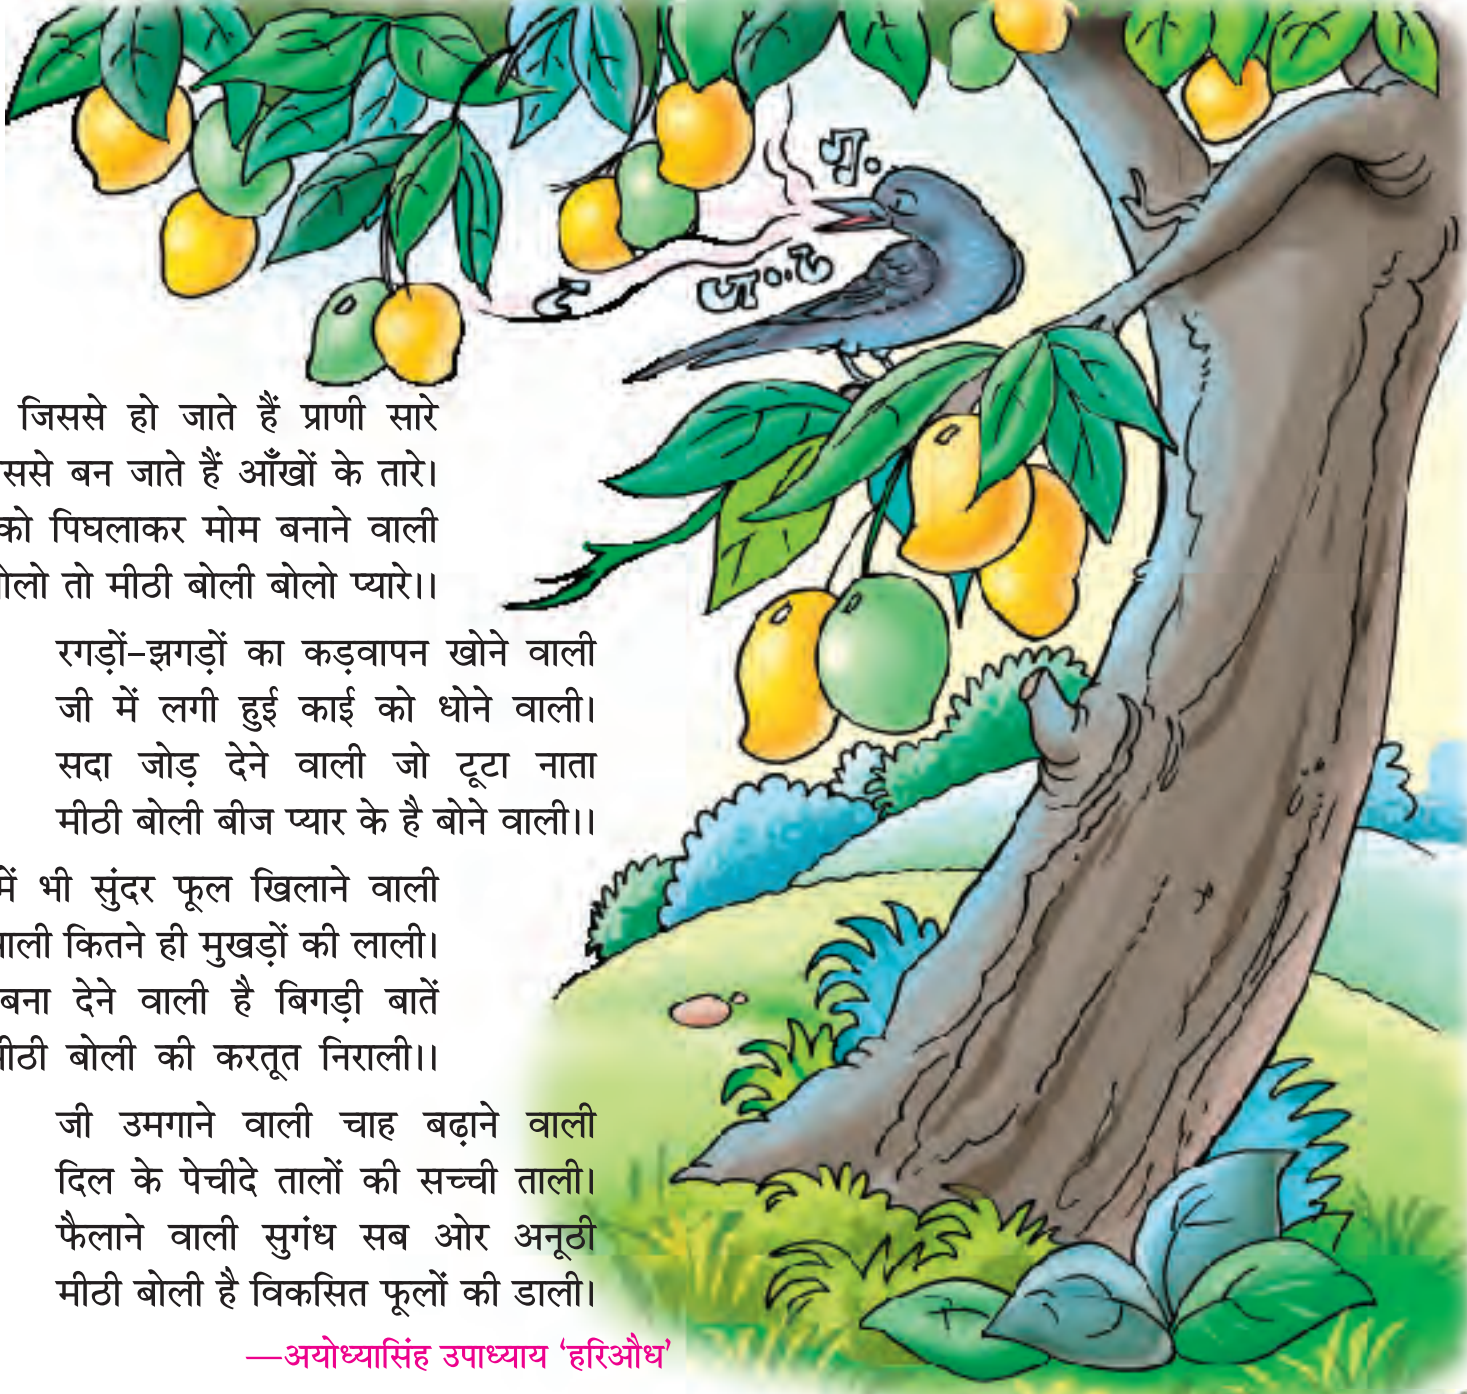 जिससे हो जाते हैं प्राणी सारे
बन जाते हैं आँखों के तारे।
को पिघलाकर मोम बनाने वाली
तो मीठी बोली बोलो प्यारे।।
रगड़ों–झगड़ों का कड़वापन खोने वाली
जी में लगी हुई काई को धोने वाली।
सदा जोड़ देने वाली जो टूटा नाता
मीठी बोली बीज प्यार के है बोने वाली।।
में भी सुंदर फूल खिलाने वाली
कितने ही मुखड़ों की लाली।
बना देने वाली है बिगड़ी बातें
बोली की करतूत निराली।।
जी उमगाने वाली चाह बढ़ाने वाली
दिल के पेचीदे तालों की सच्ची ताली।
फैलाने वाली सुगंध सब ओर अनूठी
मीठी बोली है विकसित फूलों की डाली।
—अयोध्यासिंह उपाध्याय ‘हरिऔध’